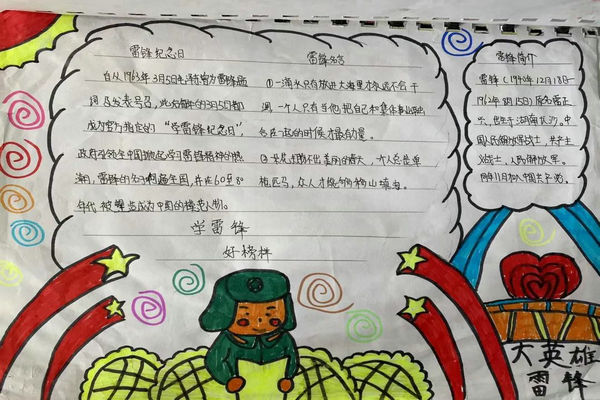 雷锋纪念日
自从1963年3月5日毛泽东为雷锋题
词及发表号召,此后每年的3月5日都
成为官方指定的“学雷锋纪念日”,
政府带领全中国掀起学习雷锋精神的热
潮,雷锋的名字传遍全国,并在60至80
年代被塑造成为中国的模范人物。
雷锋名言
①一滴水只有放进大海里才永远不会干
涸,一个人只有当他把自己和集体事业融
合在一起的时候才最有力量。
学雷锋
好榜样
雷锋简介
雷锋(1940年12月18日-
1962年8月15日)原名雷正
兴,出生于湖南长沙,中
国人民解放军战士,共产主
义战士,人民解放军。
大英雄
雷锋